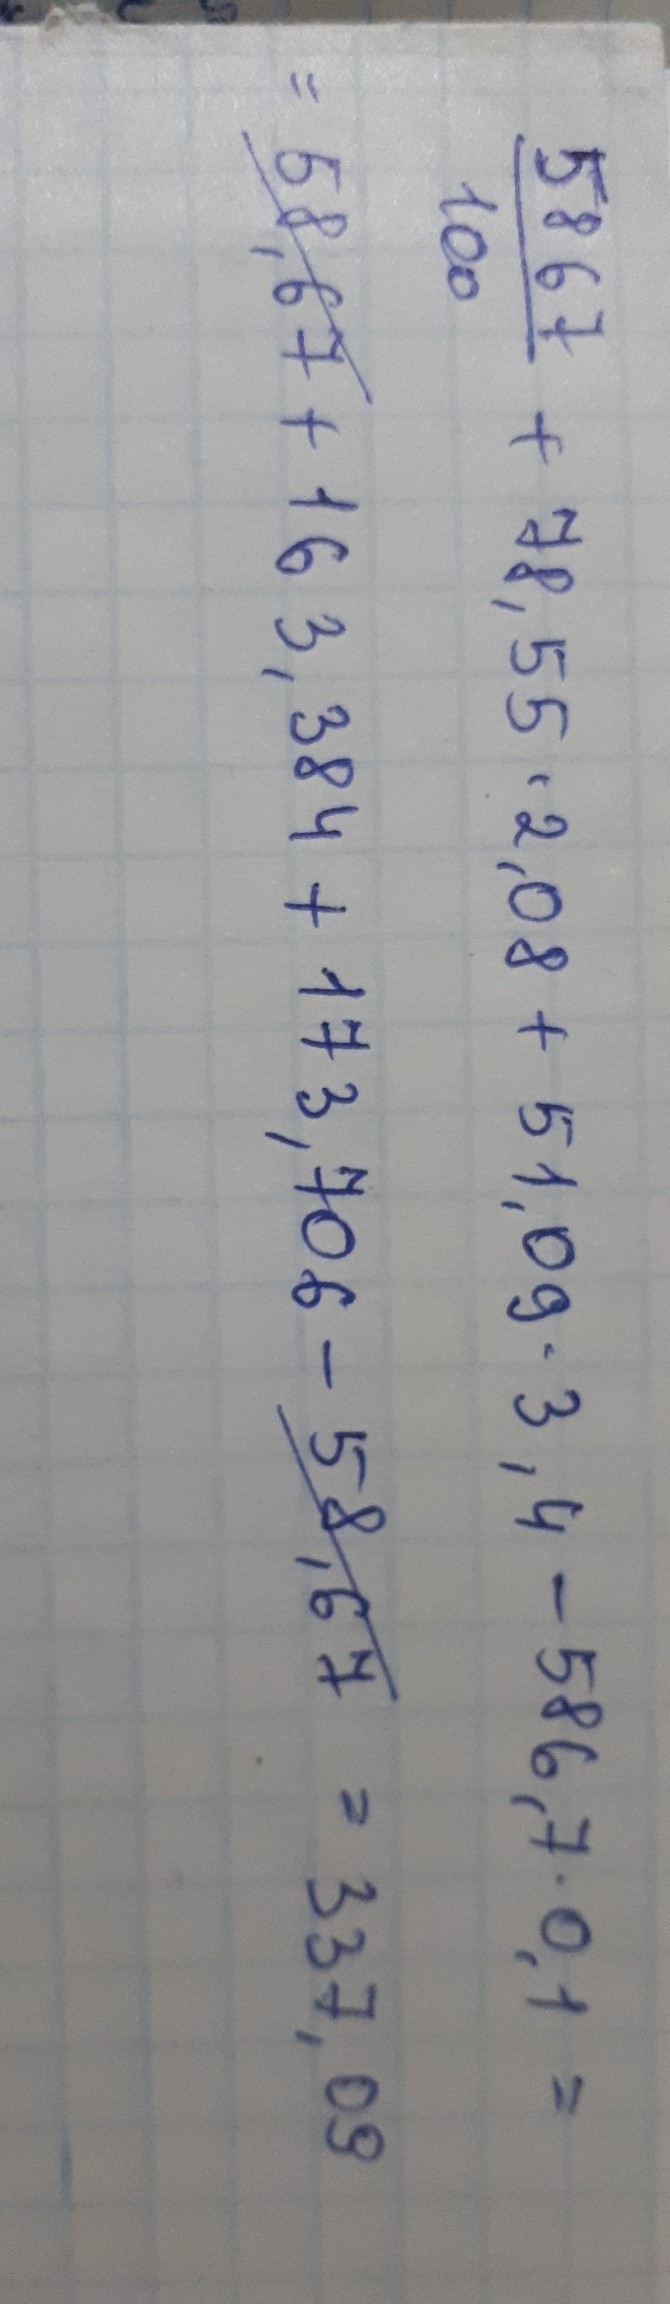 5867/100 + 78,55·2,08 + 51,09·3,4 - 586,7·0,1 =
= 58,67 + 163,384 + 173,706 - 58,67 = 337,09